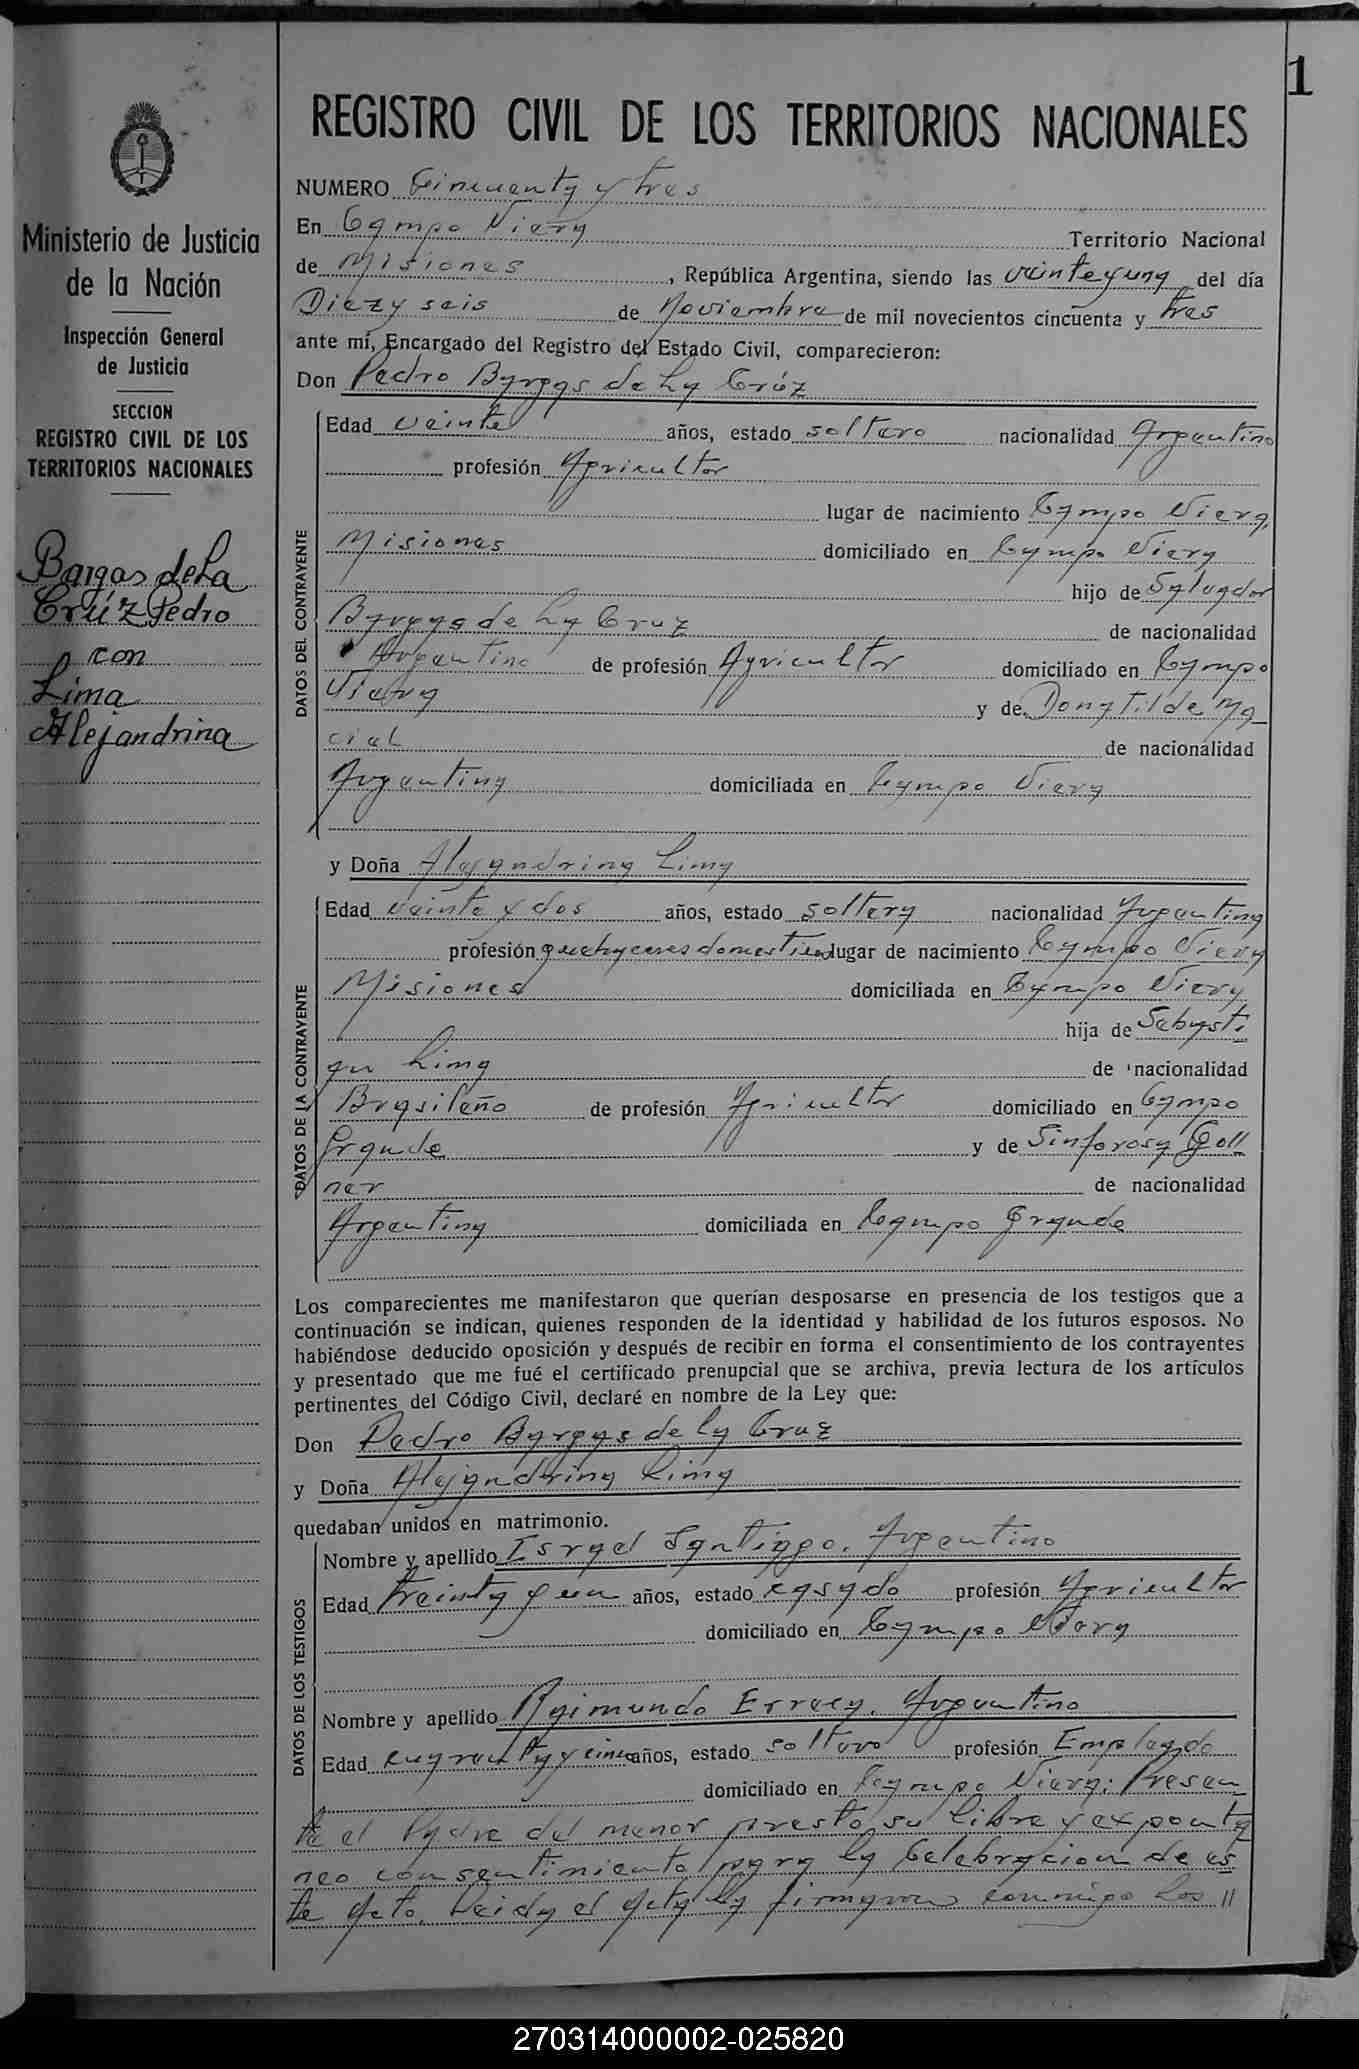 1
REGISTRO CIVIL DE LOS TERRITORIOS NACIONALES
Ministerio de Justicia
de la Nación
Inspección General
de Justicia
SECCION
REGISTRO CIVIL DE LOS
TERRITORIOS NACIONALES
Bargas de La
Crúz Pedro
con
Lima
Alejandrina
NUMERO Cincuenta y tres
En Campo Viera Territorio Nacional
de Misiones, República Argentina, siendo las veinteyuna del día
Diez y seis de Noviembre de mil novecientos cincuenta y tres
ante mí, Encargado del Registro del Estado Civil, comparecieron:
Don Pedro Bargas de La Crúz
DATOS DEL CONTRAYENTE
Edad veinte años, estado soltero nacionalidad Argentino
profesión Agricultor
lugar de nacimiento Campo Viera,
Misiones domiciliado en Campo Viera
hijo de Salvador
Bargas de La Cruz de nacionalidad
Argentino de profesión Agricultor domiciliado en Campo
Viera y de Donatilde Ma
ciel de nacionalidad
Argentina domiciliada en Campo Viera
y Doña Alejandrina Lima
DATOS DE LA CONTRAYENTE
Edad veinte y dos años, estado soltera nacionalidad Argentina
profesión quehaceres domesticos lugar de nacimiento Campo Viera
Misiones domiciliada en Campo Viera
hija de Sebasti
an Lima de nacionalidad
Brasileño de profesión Agricultor domiciliado en Campo
Grande y de Sinforosa
de nacionalidad
Argentina domiciliada en Campo Grande
Los comparecientes me manifestaron que querían desposarse en presencia de los testigos que a
continuación se indican, quienes responden de la identidad y habilidad de los futuros esposos. No
habiéndose deducido oposición y después de recibir en forma el consentimiento de los contrayentes
y presentado que me fué el certificado prenupcial que se archiva, previa lectura de los artículos
pertinentes del Código Civil, declaré en nombre de la Ley que:
Don Pedro Bargas de la Cruz
y Doña Alejandrina Lima
quedaban unidos en matrimonio.
DATOS DE LOS TESTIGOS
Nombre y apellido Israel Santiago. Argentino
Edad treinta y un años, estado casado profesión Agricultor
domiciliado en Campo Viera
Nombre y apellido Raimundo Argentino
Edad cuarenta y cinco años, estado soltero profesión Empleado
domiciliado en Campo Viera: Presen
te el Padre del menor presto su libre y exponta
neo consentimiento para la Celebracion de es
te Acto. Leida el acta la firmaron conmigo Los //
270314000002-025820